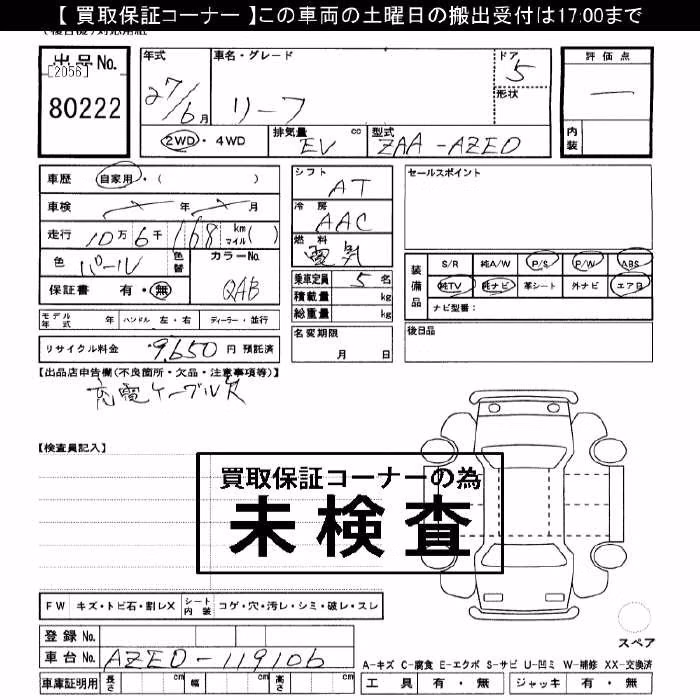 【 買取保証コーナー 】この車両の土曜日の搬出受付は17:00まで
出品No.
[2056]
80222
年式
27/6月
車名・グレード
リーフ
ドア
5
形状
評価点
—
内装
2WD・4WD
排気量 EV cc
型式 ZAA-AZE0
車歴 自家用・( )
車検 年 月
走行 10万6千168 km マイル( )
色 パール 色替
カラーNo. QAB
保証書 有・無
シフト AT
冷房 AAC
燃料 電気
乗車定員 5名
積載量 kg
総重量 kg
セールスポイント
装備品
S/R 純A/W P/S P/W ABS
純TV 純ナビ 革シート 外ナビ エアB
ナビ型番:
モデル年式 年 ハンドル 左・右 ディーラー・並行
名変期限 月 日
後日品
リサイクル料金 9,650 円 預託済
【出品店申告欄(不良箇所・欠品・注意事項等)】
充電ケーブル欠
【検査員記入】
買取保証コーナーの為
未検査
FW キズ・トビ石・割レX シート内装 コゲ・穴・汚レ・シミ・破レ・スレ
スペア
登録No.
車台No. AZE0-119106
A-キズ C-腐食 E-エクボ S-サビ U-凹ミ W-補修 XX-交換済
車庫証明用 長さ cm 幅 cm 高さ cm
工具 有・無 ジャッキ 有・無